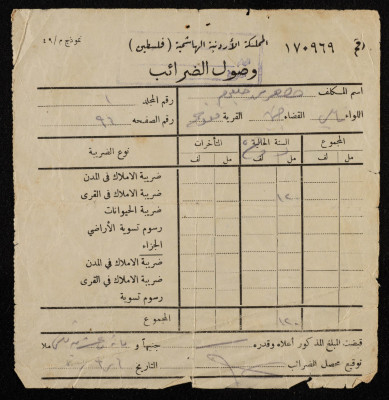 نموذج م/٤٩
المملكة الأردنية الهاشمية (فلسطين)
رقم ١٧٠٩٦٩
وصول الضرائب
اسم المكلف
رقم المجلد ١
اللواء القضاء القرية
رقم الصفحه ٩٦
نوع الضريبة التأخرات السنة الحالية المجموع
مل لف مل لف مل لف
ضريبة الاملاك في المدن
ضريبة الاملاك في القرى ١٢٠
ضريبة الحيوانات
رسوم تسوية الأراضي
الجزاء
ضريبة الاملاك في المدن
ضريبة الاملاك في القرى
رسوم تسوية
المجموع ١٢٠
قبضت المبلغ المذكور أعلاه وقدره جنيهاً و ملا
توقيع محصل الضرائب التاريخ